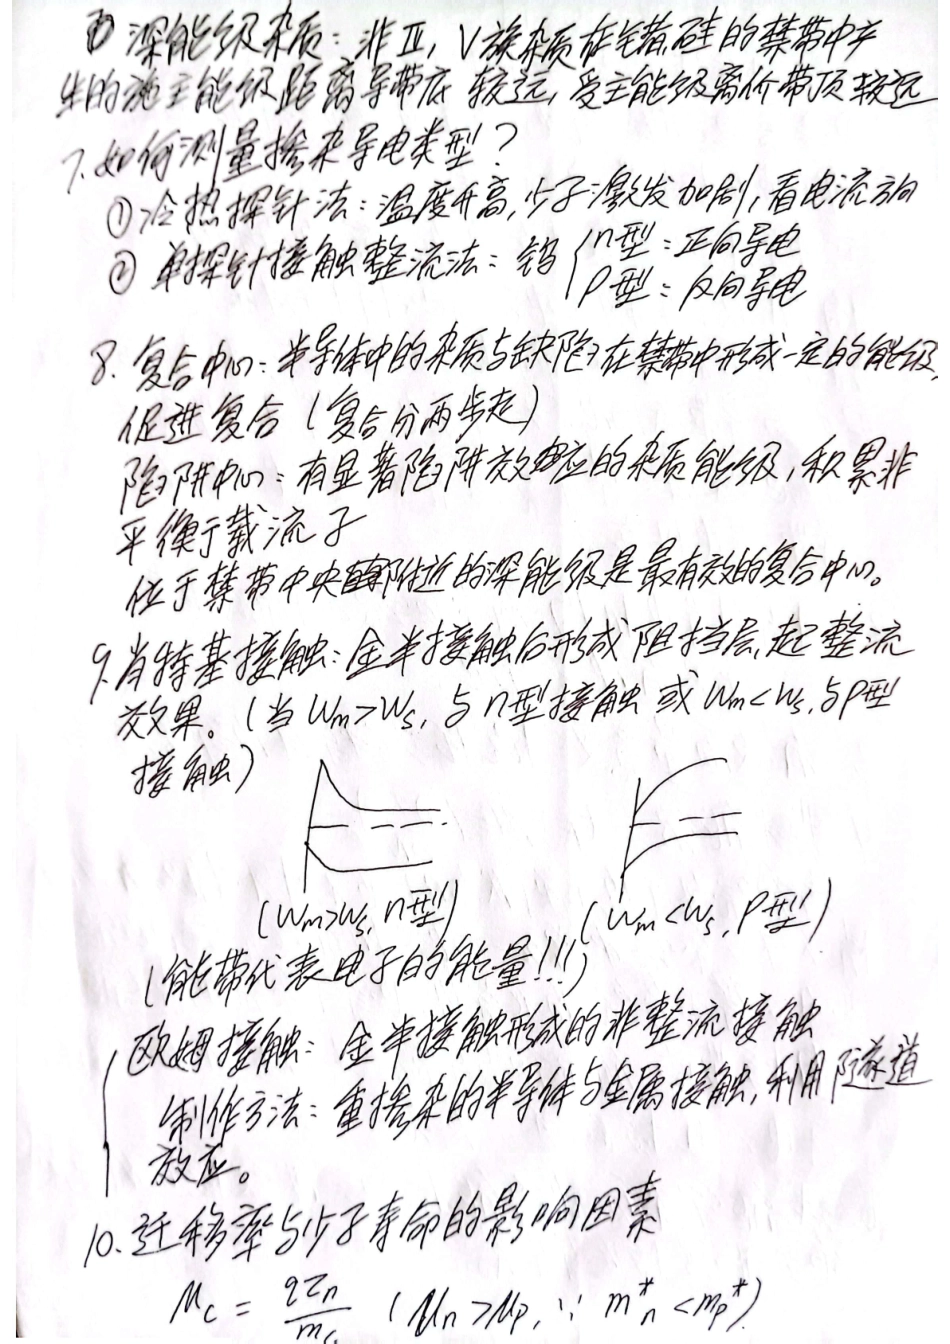 ⑩ 深能级杂质：非Ⅲ，Ⅴ族杂质在锗、硅的禁带中产
生的施主能级距离导带底 较远，受主能级离价带顶较远
7. 如何测量掺杂导电类型？
① 冷热探针法：温度升高，少子激发加剧，看电流方向
② 单探针接触整流法：钨 { n型：正向导电
P型：反向导电
8. 复合中心：半导体中的杂质与缺陷在禁带中形成一定的能级，
促进复合（复合分两步走）
陷阱中心：有显著陷阱效应的杂质能级，积累非
平衡载流子
位于禁带中央附近的深能级是最有效的复合中心。
9. 肖特基接触：金半接触后形成阻挡层，起整流
效果。（当Wm>Ws，与n型接触 或Wm<Ws，与P型
接触）
(Wm>Ws, n型) (Wm<Ws, P型)
（能带代表电子的能量!!!）
欧姆接触：金半接触形成的非整流接触
制作方法：重掺杂的半导体与金属接触，利用隧道
效应。
10. 迁移率与少子寿命的影响因素
μc = qτn/mc (μn>μp, ∵ m*n<mp*)